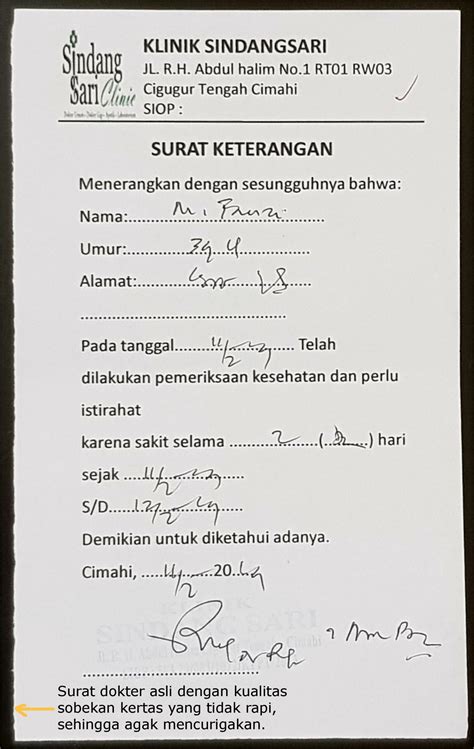 Sindang
Sari Clinic
KLINIK SINDANGSARI
JL. R.H. Abdul halim No.1 RT01 RW03
Cigugur Tengah Cimahi
SIOP :
SURAT KETERANGAN
Menerangkan dengan sesungguhnya bahwa:
Nama:.....M. Fauzi.....
Umur:.....
Alamat:.....
Pada tanggal.....11/2..... Telah
dilakukan pemeriksaan kesehatan dan perlu
istirahat
karena sakit selama .....2.....(.....) hari
sejak .....11/2.....
S/D.....12/2.....
Demikian untuk diketahui adanya.
Cimahi, .....11/2.....20..19
KLINIK
SINDANG SARI
Surat dokter asli dengan kualitas
sobekan kertas yang tidak rapi,
sehingga agak mencurigakan.